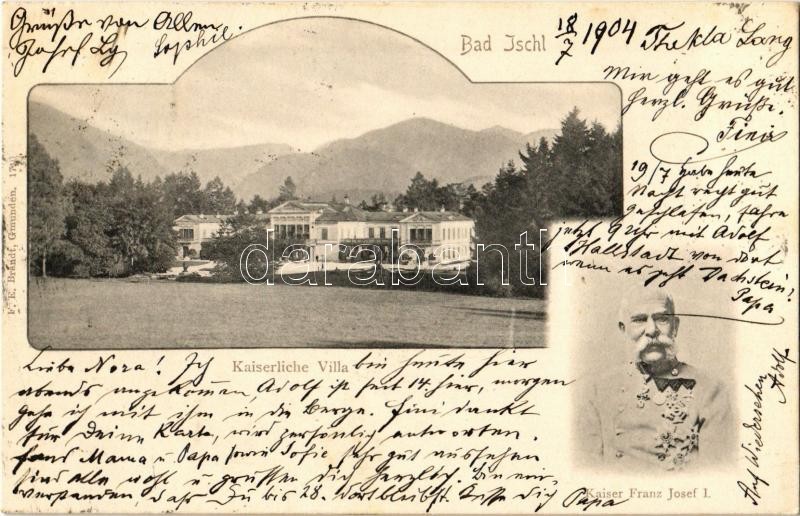 Grüße von Allen
Josef Lg Sophie.
Bad Ischl 18/7 1904 Thekla Lang
Mir geht es gut
herzl. Grüße.
Fini
19/7 habe heute
Nacht recht gut
geschlafen, fahre
jetzt 9 Uhr mit Adolf
Hallstadt von dort
wenn es geht Dachstein!
Papa
F. E. Brandt, Gmunden.
darabanth.com
Kaiserliche Villa
Liebe Nora! Ich bin heute hier
abends angekommen, Adolf ist seit 14. hier, morgen
gehe ich mit ihm in die Berge. Fini dankt
für Deine Karte, wird persönlich antworten.
fand Mama u Papa sowie Sofie sehr gut aussehen
sind alle wohl u grüssen Dich herzlich. Bin ein-
verstanden, daß Du bis 28. dort bleibst Küsse Dich Papa
Kaiser Franz Josef I.
Auf Wiedersehen
Adolf